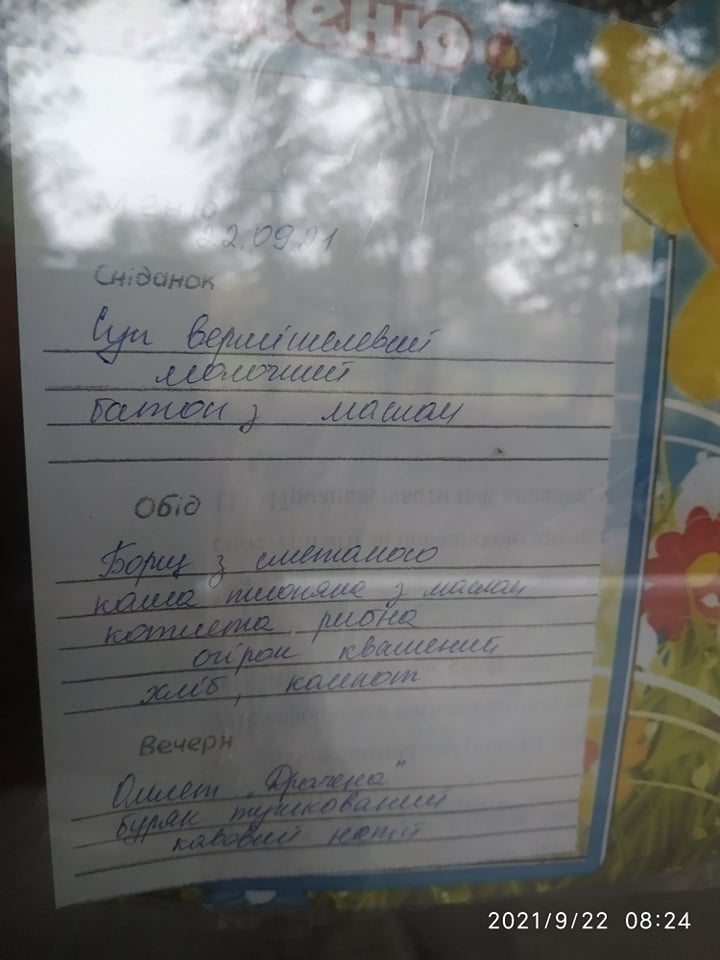 Меню
Меню
22.09.21
Сніданок
Суп вермішелевий
молочний
батон з маслом
Обід
Борщ з сметаною
каша пшоняна з маслом
котлета рибна
огірок квашений
хліб, компот
Вечеря
Омлет „Драчена"
буряк тушкований
кавовий напій
2021/9/22 08:24